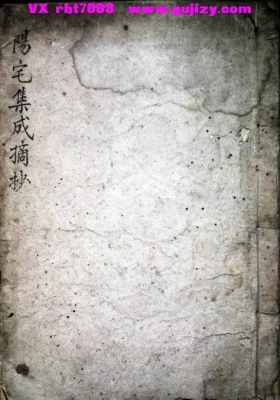 VX rbt7008 www.gujizy.com
陽宅集成摘抄